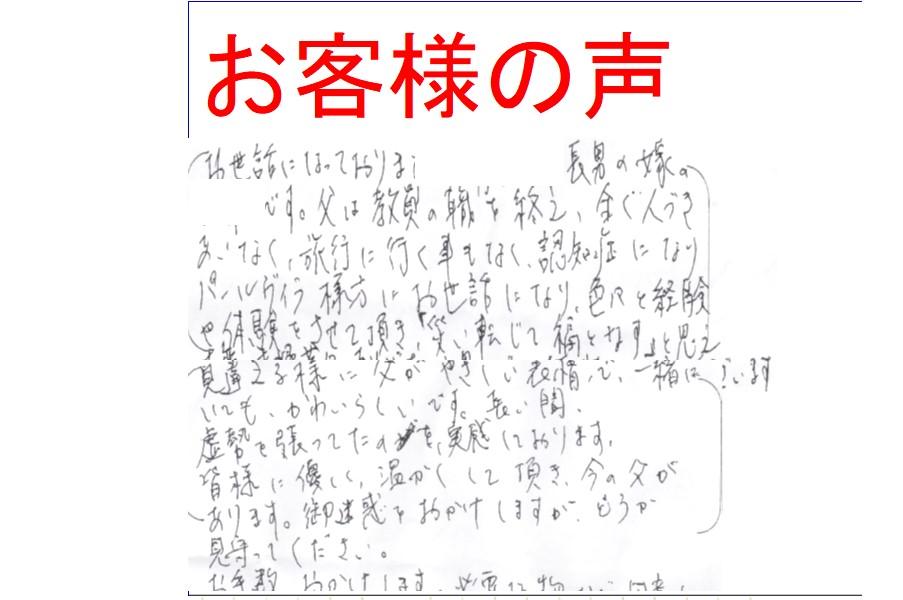 お客様の声
お世話になっております 長男の嫁の
です。父は教員の職を終え、全く人づき
あいなく、旅行に行く事もなく、認知症になり
パールヴィラ様方にお世話になり、色々と経験
や体験をさせて頂き「災い転じて福となす」と思え
見違える様に父がやさしい表情で、一緒に ざいます
いても、かわいらしいです。長い間、
虚勢を張ってたのを、実感しております。
皆様に優しく、温かくして頂き、今の父が
あります。御迷惑をおかけしますが、どうか
見守ってください。
お手数おかけします。必要な物